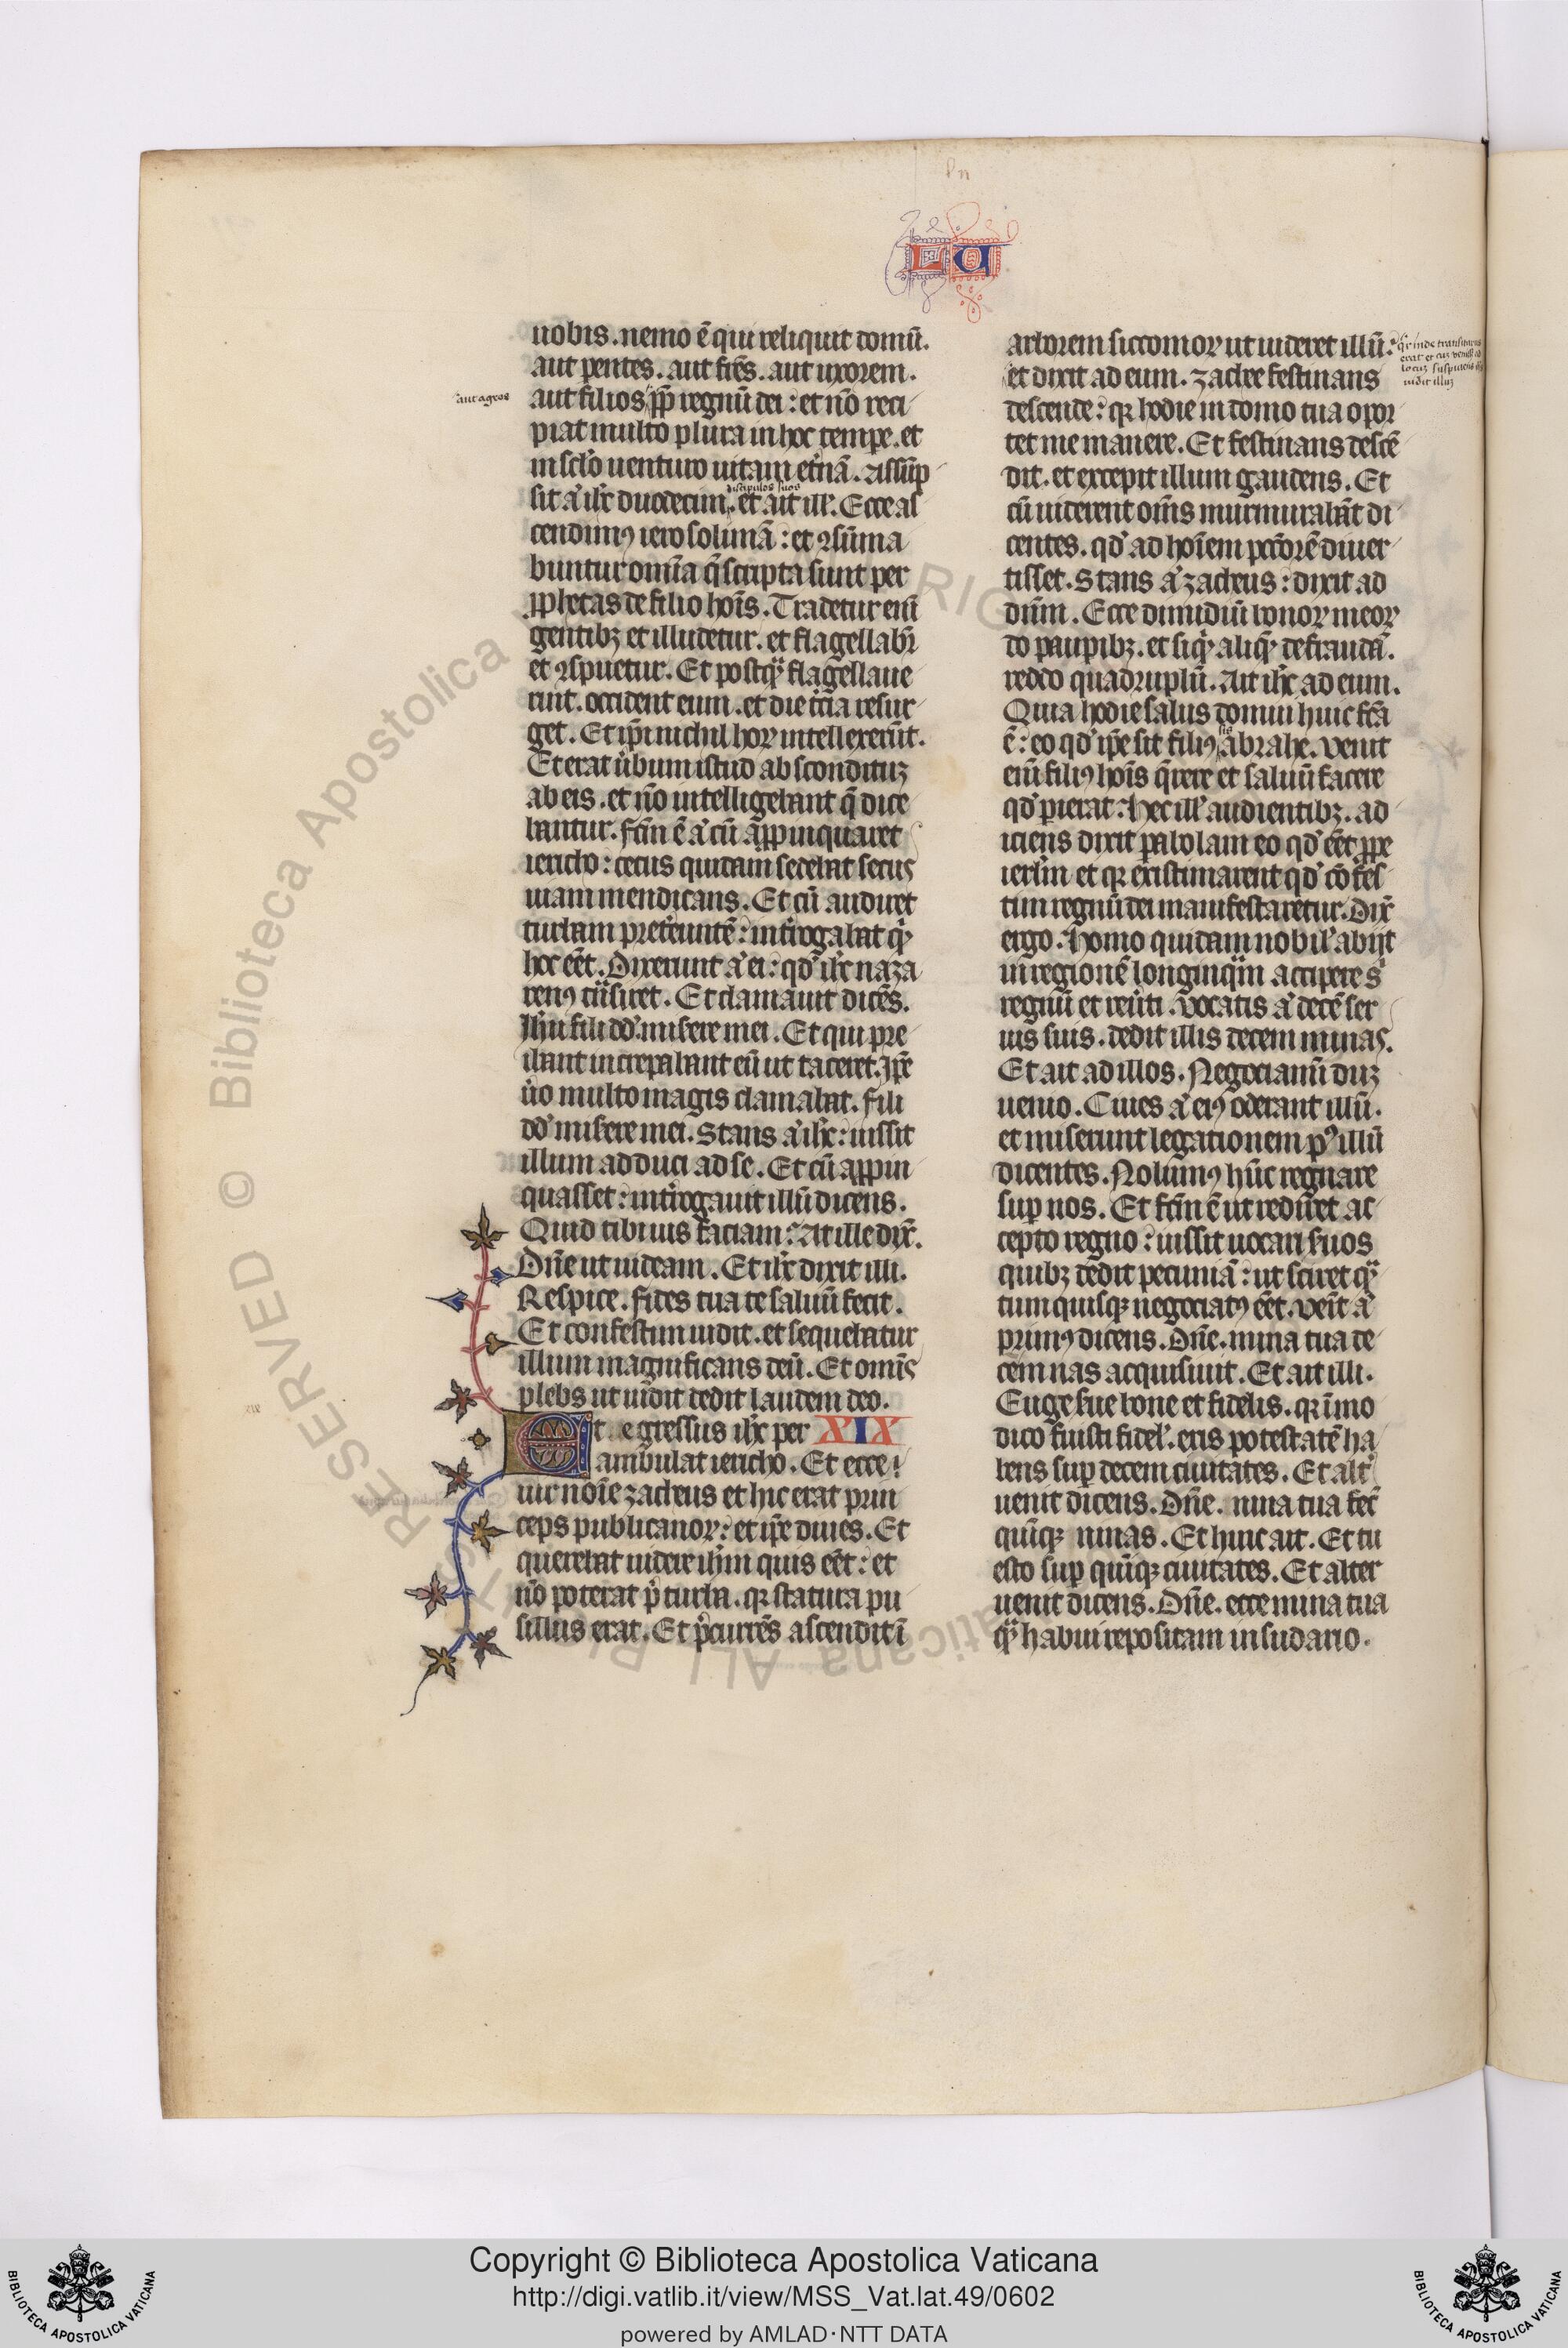 LU
uobis. nemo ē qui reliquit domū.
aut pentes. aut frēs. aut uxorem.
aut agros
aut filios ꝓp̄ regnū dei: et nō reci
piat multo plura in hoc tempe. et
in sclo uenturo uitam etnā. Assūp
sit a ihc duodecim. et ait ill. Ecce as
discipulos suos
cendimꝰ ierosolimā: et ꝯsūma
buntur omīa q̄ scripta sunt per
ꝓphetas de filio hoīs. Tradetur eni
gentibꝫ et illudetur. et flagellabr
et ꝯspuetur. Et postqͣ flagellaue
rint. occident eum. et die tcia resur
get. Et ipi nichil hoꝝ intellexerūt.
Et erat ubum istud absconditūꝫ
ab eis. et nō intelligebant q̄ dice
bantur. fcm ē a cū aꝓpinquaret
iericho: cecus quidam sedebat secus
uiam mendicans. Et cū audiret
turbam pretereuntē: introgabat qͥ
hoc eēt. Dixerunt a ei: qd ihc naza
renꝰ tͣnsiret. Et clamauit dicēs.
Ihu fili dd miserere mei. Et qui pre
ibant increpabant eū ut taceret. Ipe
uo multo magis clamabat. fili
dd miserere mei. Stans a ihc: iussit
illum adduci ad se. Et cū aꝓpin
quasset: introgauit illū dicens.
Quid tibi uis faciam? At ille dix.
Dñe ut uideam. Et ihc dixit illi.
Respice. fides tua te saluū fecit.
Et confestim uidit. et sequebatur
illum magnificans deū. Et omīs
plebs ut uidit dedit laudem deo.
Et egressus ihc per XIX
ambulat iericho. Et ecce
uir noīe zacheus et hic erat prin
ceps publicanoꝝ: et ipe diues. Et
querebat uidere ihm quis eēt: et
nō poterat p̄ turba. qꝛ statura pu
sillus erat. Et p̄currēs ascendit ī
arborem siccomoꝝ ut uideret illū.
qꝛ inde transiturus
erat et cuꝫ venisset ad
locuꝫ suspiciens ihs
uidit illuꝫ
et dixit ad eum. zachee festinans
descende: qꝛ hodie in domo tua opor
tet me manere. Et festinans descē
dit. et excepit illum gaudens. Et
cū uiderent omīs murmurabāt di
centes. qd ad hoīem peccorē diuer
tisset. Stans a zacheus: dixit ad
dnm. Ecce dimidiū bonoꝝ meoꝝ
do paupibꝫ. et siqͥ aliqͥ defraudā.
reddo quadruplū. Ait ihc ad eum.
Quia hodie salus domui huic fca
ē: eo qd ipe sit filiꝰ abrahe. Venit
eni filiꝰ hoīs q̄rere et saluū facere
qd pierat. Hec ill audientibꝫ. ad
iciens dixit pabolam eo qd eēt ꝓpe
ierlm et qꝛ existimarent qd cōfes
tim regnū dei manifestaretur. Dix
ergo. Homo quidam nobil abijt
in regionē longinqͣm accipere s
regnū et reuti. Vocatis a decē ser
uis suis. dedit illis decem minas.
Et ait ad illos. Negociamī duꝫ
uenio. Ciues a eiꝰ oderant illū.
et miserunt legationem pꝰ illū
dicentes. Nolumꝰ hūc regnare
sup nos. Et fcm ē ut rediret ac
cepto regno: iussit uocari suos
quibꝫ dedit pecuniā: ut sciret qͣ
tum quisqꝫ negociatꝰ eēt. Venit a
primꝰ dicens. Dñe. mina tua de
cem nas acquisiuit. Et ait illi.
Euge sue bone et fidelis. qꝛ ī mo
dico fuisti fidel. eris potestatē ha
bens sup decem ciuitates. Et alt
uenit dicens. Dñe. mina tua fec
quinqꝫ minas. Et huic ait. Et tu
esto sup quinqꝫ ciuitates. Et alter
uenit dicens. Dñe. ecce mina tua
qͣ habui repositam in sudario.
Copyright © Biblioteca Apostolica Vaticana
http://digi.vatlib.it/view/MSS_Vat.lat.49/0602
powered by AMLAD·NTT DATA
BIBLIOTECA APOSTOLICA VATICANA
BIBLIOTECA APOSTOLICA VATICANA